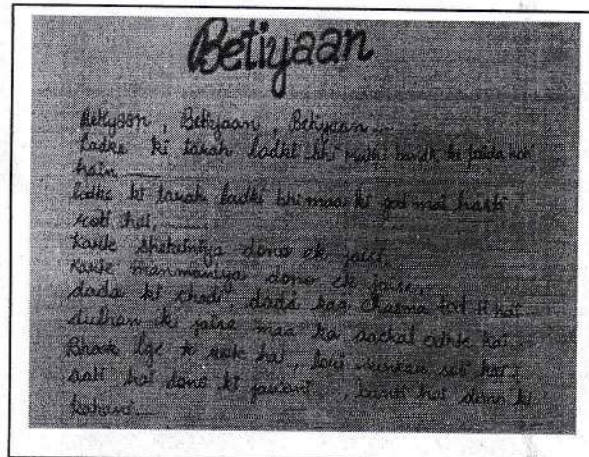 Betiyaan
Betiyaan, Betiyaan, Betiyaan....
Ladke ki tarah ladki bhi mutthi bandh ke paida hoti
hain
ladke ki tarah ladki bhi maa ki god mai hasti
roti hai,
Karte shetaniya dono ek jaisi,
Karte manmaniya dono ek jaise,
dada ki chadi, dadi kaa chasma
dulhan ki jaise maa ka aachal odhte hai
Bhook lge to rote hai, lori sunkar
aati hai dono ki jawani, banti hai dono ki
kahani